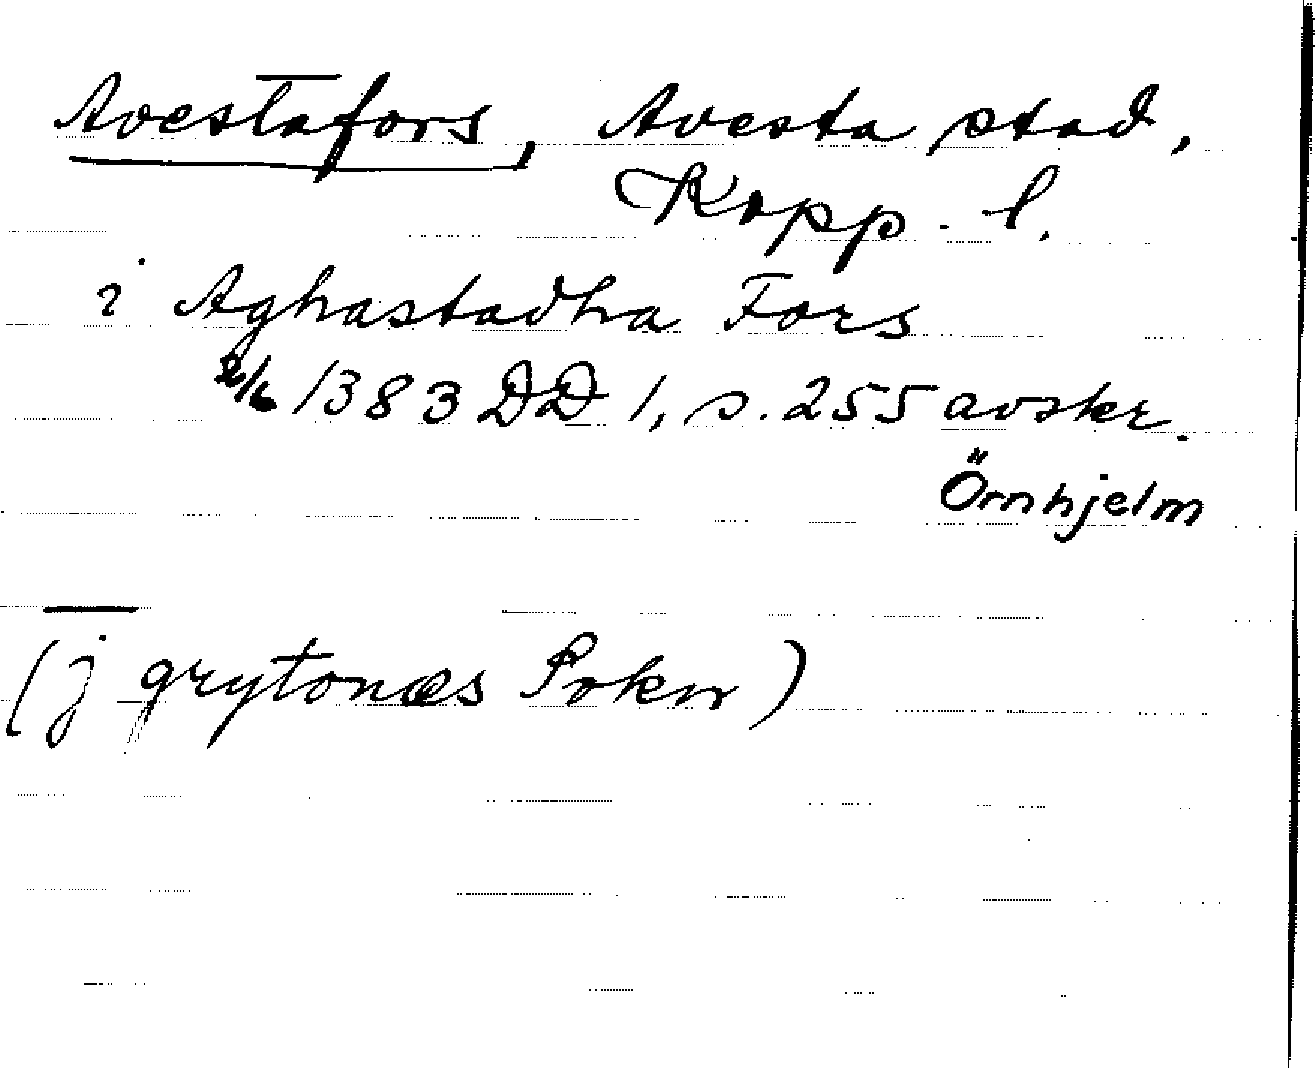 Avestafors, Avesta stad,
Kopp. l.
i Aghastadha Fors
2/6 1383 DD 1, s. 255 avskr.
Örnhjelm
(j grytonæs Sokn)